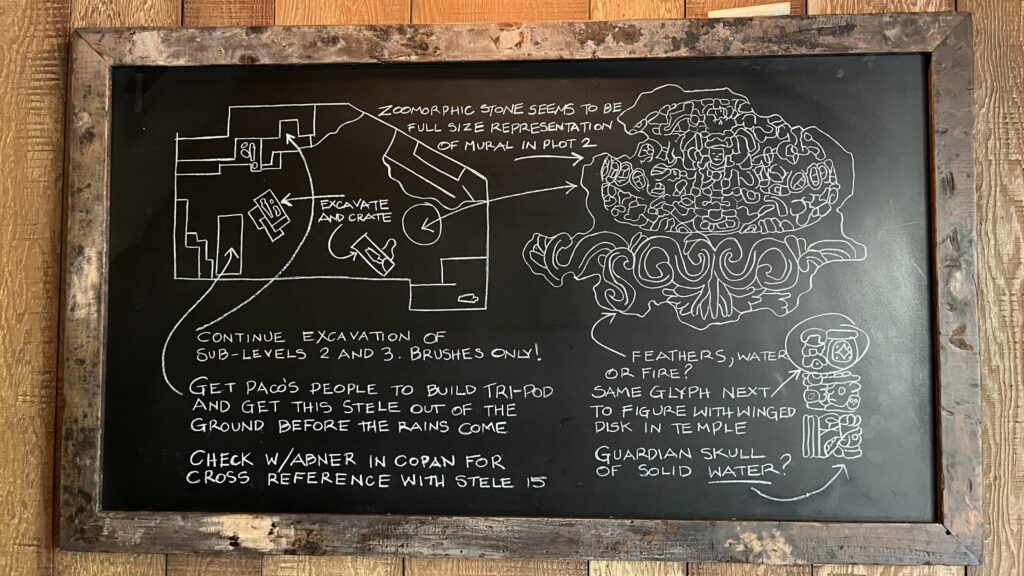 ZOOMORPHIC STONE SEEMS TO BE
FULL SIZE REPRESENTATION
OF MURAL IN PLOT 2
EXCAVATE
AND CRATE
CONTINUE EXCAVATION OF
SUB-LEVELS 2 AND 3. BRUSHES ONLY!
GET PACO'S PEOPLE TO BUILD TRI-POD
AND GET THIS STELE OUT OF THE
GROUND BEFORE THE RAINS COME
CHECK W/ABNER IN COPAN FOR
CROSS REFERENCE WITH STELE 15
FEATHERS, WATER
OR FIRE?
SAME GLYPH NEXT
TO FIGURE WITH WINGED
DISK IN TEMPLE
GUARDIAN SKULL
OF SOLID WATER?